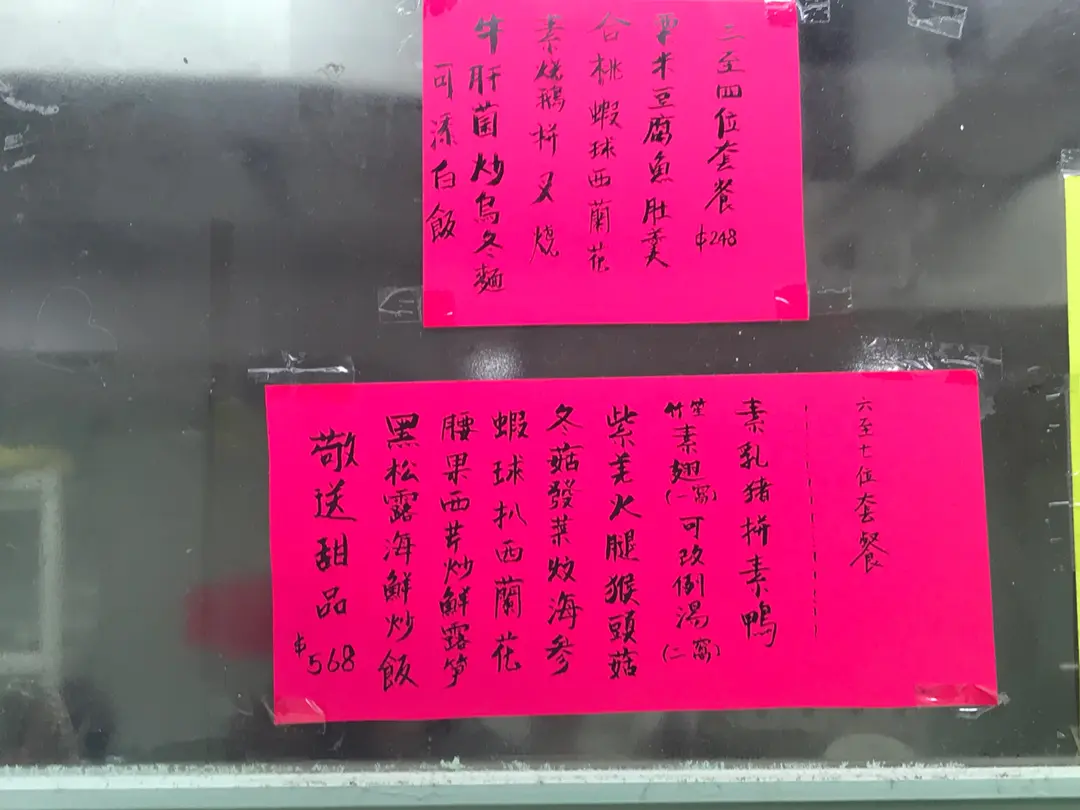 三至四位套餐 $248
粟米豆腐魚肚羹
合桃蝦球西蘭花
素燒鵝拼叉燒
牛肝菌炒烏冬麵
可添白飯
六至七位套餐
素乳猪拼素鴨
竹笙素翅(一窩)可改例湯(二窩)
紫羌火腿猴頭菇
冬菇發菜炆海參
蝦球扒西蘭花
腰果西芹炒鮮露笋
黑松露海鮮炒飯
敬送甜品 $568